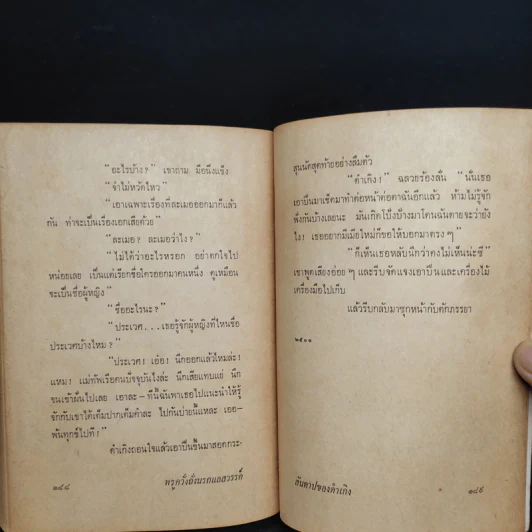 "อะไรบ้าง?" เขาถาม มือนึ่งแข็ง
"จำไม่หวัดไหว"
"เอาเฉพาะเรื่องที่ละเมอออกมากี่แล้ว
กัน ท่าจะเป็นเรื่องเอกเสียด้วย"
"ละเมอ? ละเมอว่าไง?"
"ไม่ได้ว่าอะไรหรอก อย่าตกใจไป
หน่อยเลย เป็นแต่เรียกชื่อใครออกมาคนหนึ่ง ดูเหมือน
จะเป็นชื่อผู้หญิง"
"ชื่ออะไรนะ?"
"ประเวศ...เธอรู้จักผู้หญิงที่ไหนชื่อ
ประเวศบ้างไหม?"
"ประเวศ! เอ๋อ! นึกออกแล้วไหมล่ะ!
แหม! แม่ทัพเรือคนปัจจุบันไงล่ะ นึกเสียแทบแย่ นึก
จนเข้าฝันไปเลย เอาละ—ทีนี้ฉันพาเธอไปแนะนำให้รู้
จักกับเขาได้เต็มปากเต็มคำละ ไปกันบ่ายนี้แหละ เออ-
พันทุกข์ไปที!"
คำเกิงถอนใจแล้วเอาปืนขึ้นมาสอดกระ-
๒๔๘ หรูครั้งยังนรกแลสวรรค์
สุนนัดสุดท้ายอย่างลืมตัว
"คำเกิง! " ฉลวยร้องลั่น "นั่นเธอ
เอาปืนมาเช็ดมาทำต่อหน้าต่อตาฉันอีกแล้ว ห้ามไม่รู้จัก
ฟังกันบ้างเลยนะ มันเกิดโป้งป้างมาโดนฉันตายจะว่ายัง
ไง! เธออยากมีเมียใหม่ก็ขอให้บอกมาตรงๆ"
"ก็เห็นเธอหลับนึกว่าคงไม่เห็นน่ะซี"
เขาพูดเสียงอ่อยๆ และรีบจัดแจงเอาปืนและเครื่องไม้
เครื่องมือไปเก็บ
แล้วรีบกลับมาซุกหน้ากับตักภรรยา
๒๕๐๐
กันดาปของคำเกิง ๒๔๙